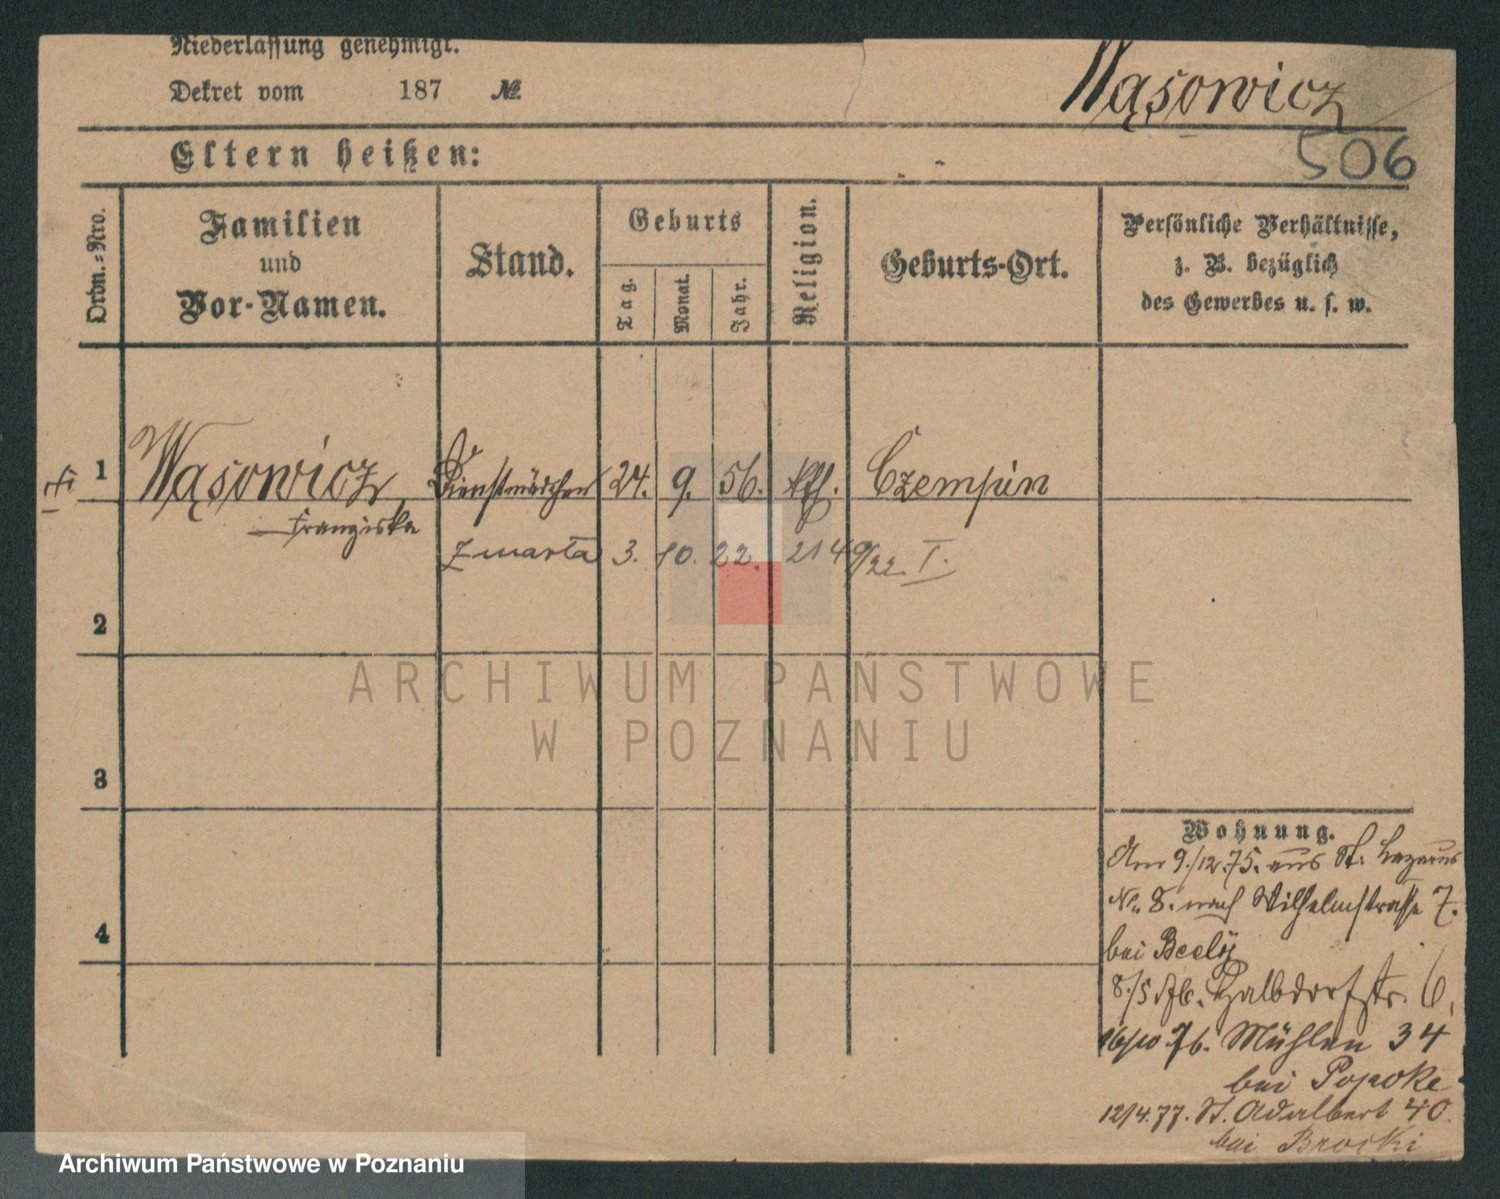 Niederlassung genehmigt.
Dekret vom 187 №
Wąsowicz
506
Eltern heißen:
Ordn.-Nro.
Familien
und
Vor-Namen.
Stand.
Geburts
Tag.
Monat.
Jahr.
Religion.
Geburts-Ort.
Persönliche Verhältnisse,
z. B. bezüglich
des Gewerbes u. s. w.
1 Wąsowicz Dienstmädchen 24. 9. 56. kth. Czempin
Franziska
zmarła 3. 10. 22. 2149/22. I.
2
3
4
ARCHIWUM PAŃSTWOWE
W POZNANIU
Wohnung.
Am 9./12.75. aus St. Lazarus
No 8. nach Wilhelmstrasse 7.
bei Beely
8./5 76. Halbdorfstr. 6.
16/10 76. Mühlen 34
bei
12/4.77. St. Adalbert 40.
bei Brocki
Archiwum Państwowe w Poznaniu